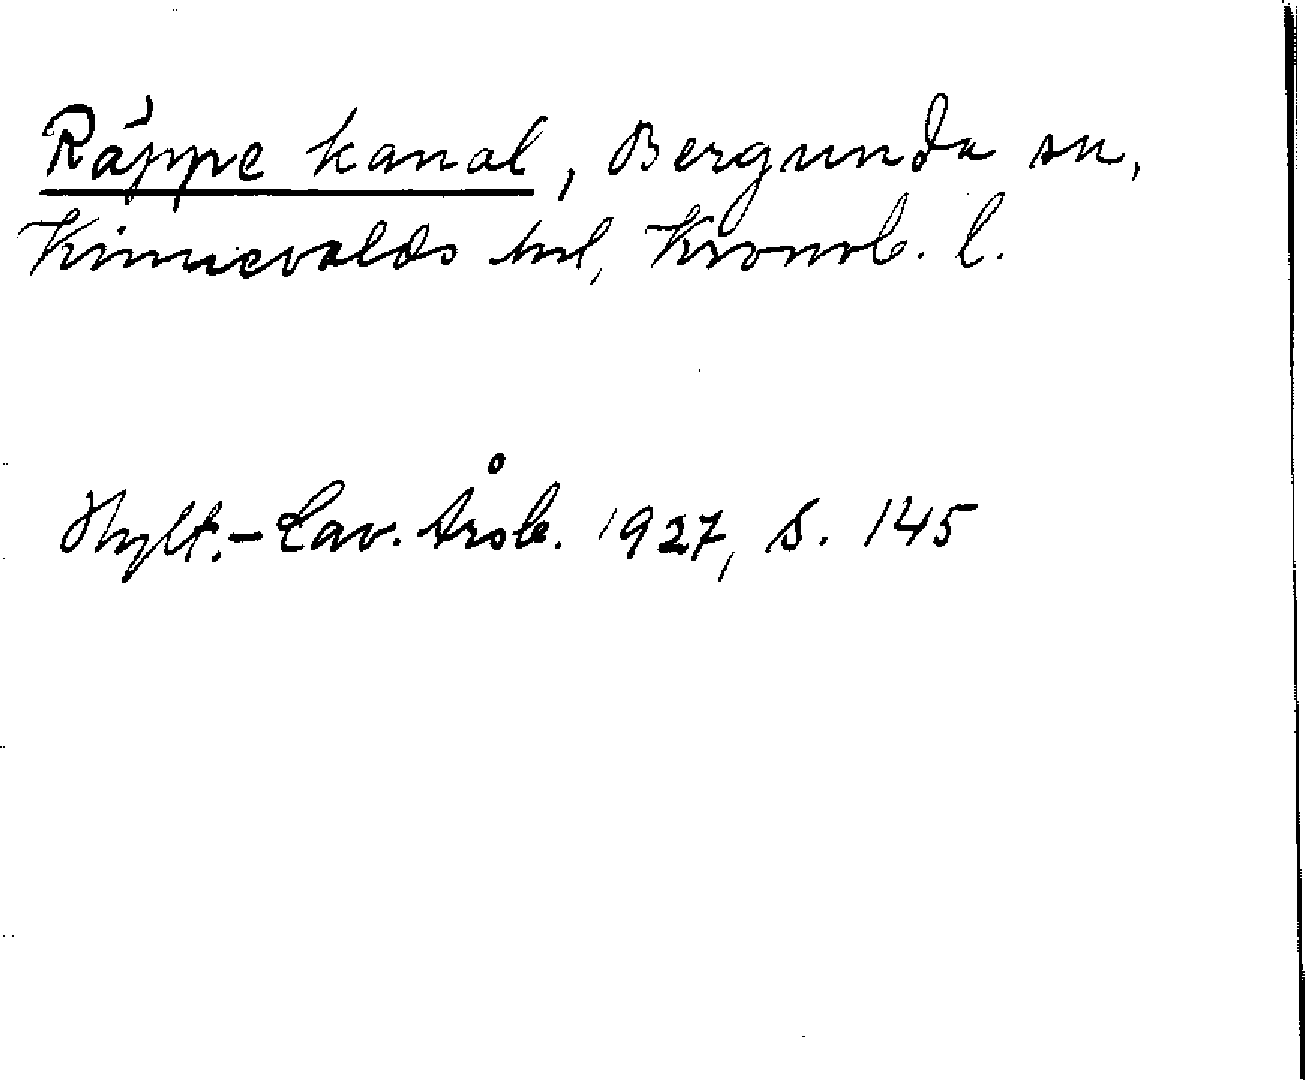 Räppe kanal, Bergunda sn,
Kinnevalds hd, Kronob. l.
Hylt.-Cav. Årsb. 1927, s. 145